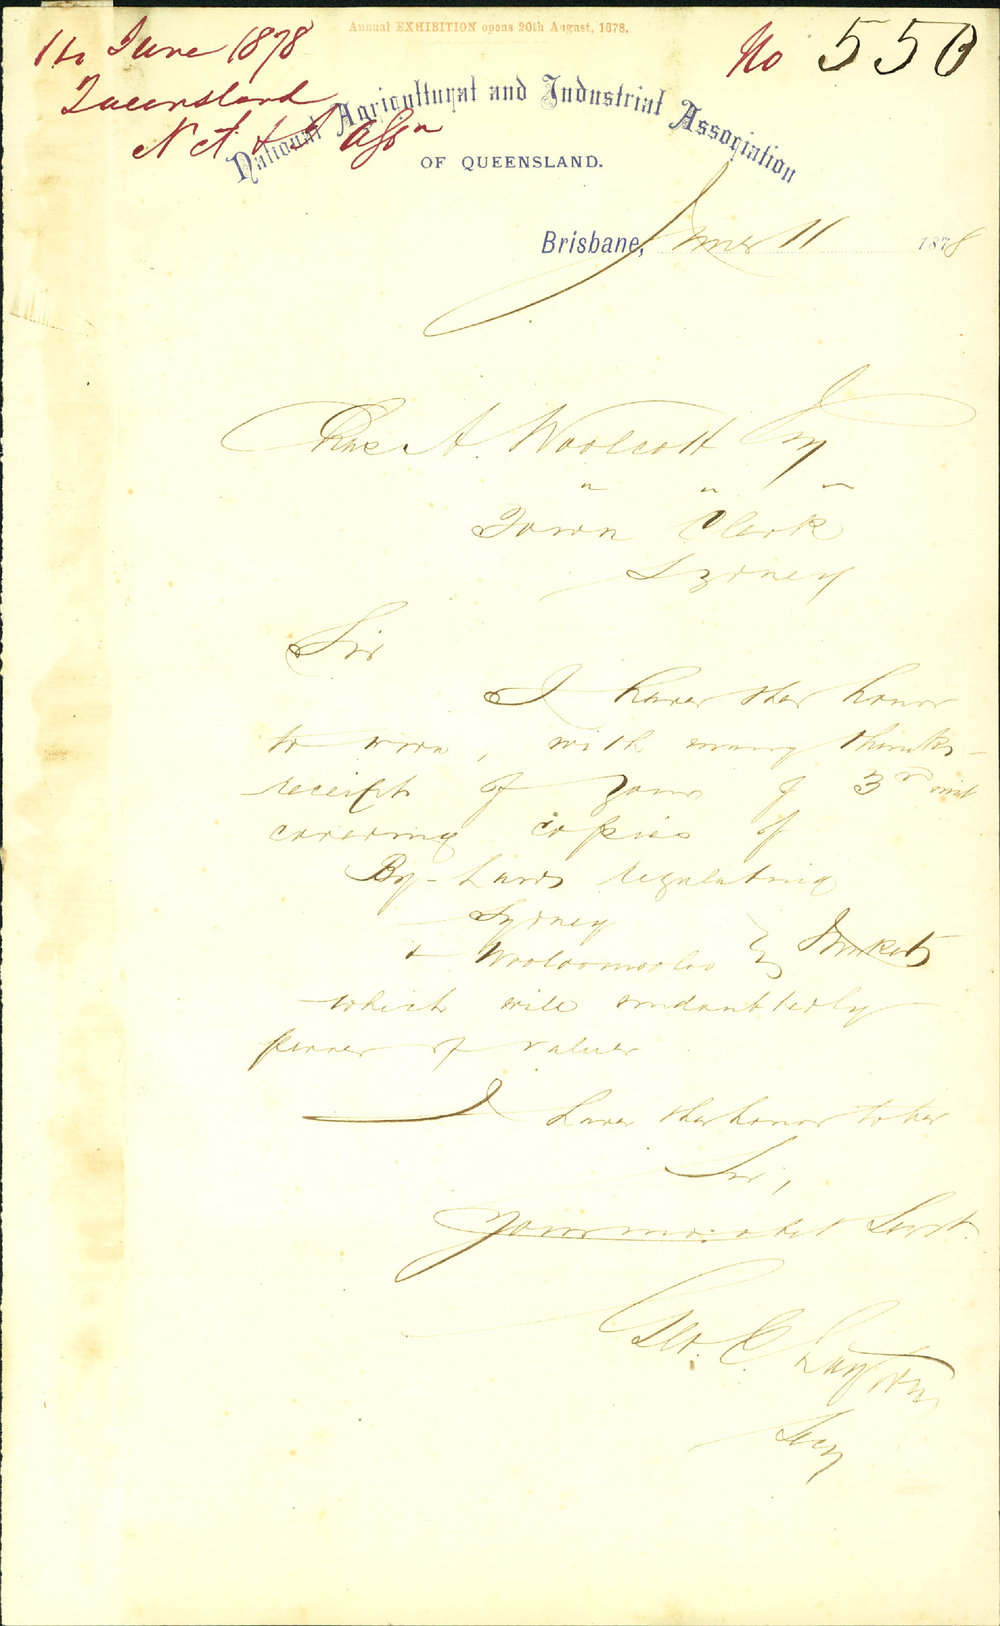 Annual EXHIBITION opens 20th August, 1878.
14 June 1878
No 550
Queensland
N A & I Assn
National Agricultural and Industrial Association
OF QUEENSLAND.
Brisbane, June 11 1878
Chas A. Woolcott Esq
Town Clerk
Sydney
Sir
I have the honor
to own, with many thanks
receipt of yours of 3rd inst
covering copies of
By-Laws regulating
Sydney
+ Wooloomooloo } Markets
which will undoubtedly
prove of value
I have the honor to be
Sir,
Your mo: obdt Servt.
Geo. C.
Secy